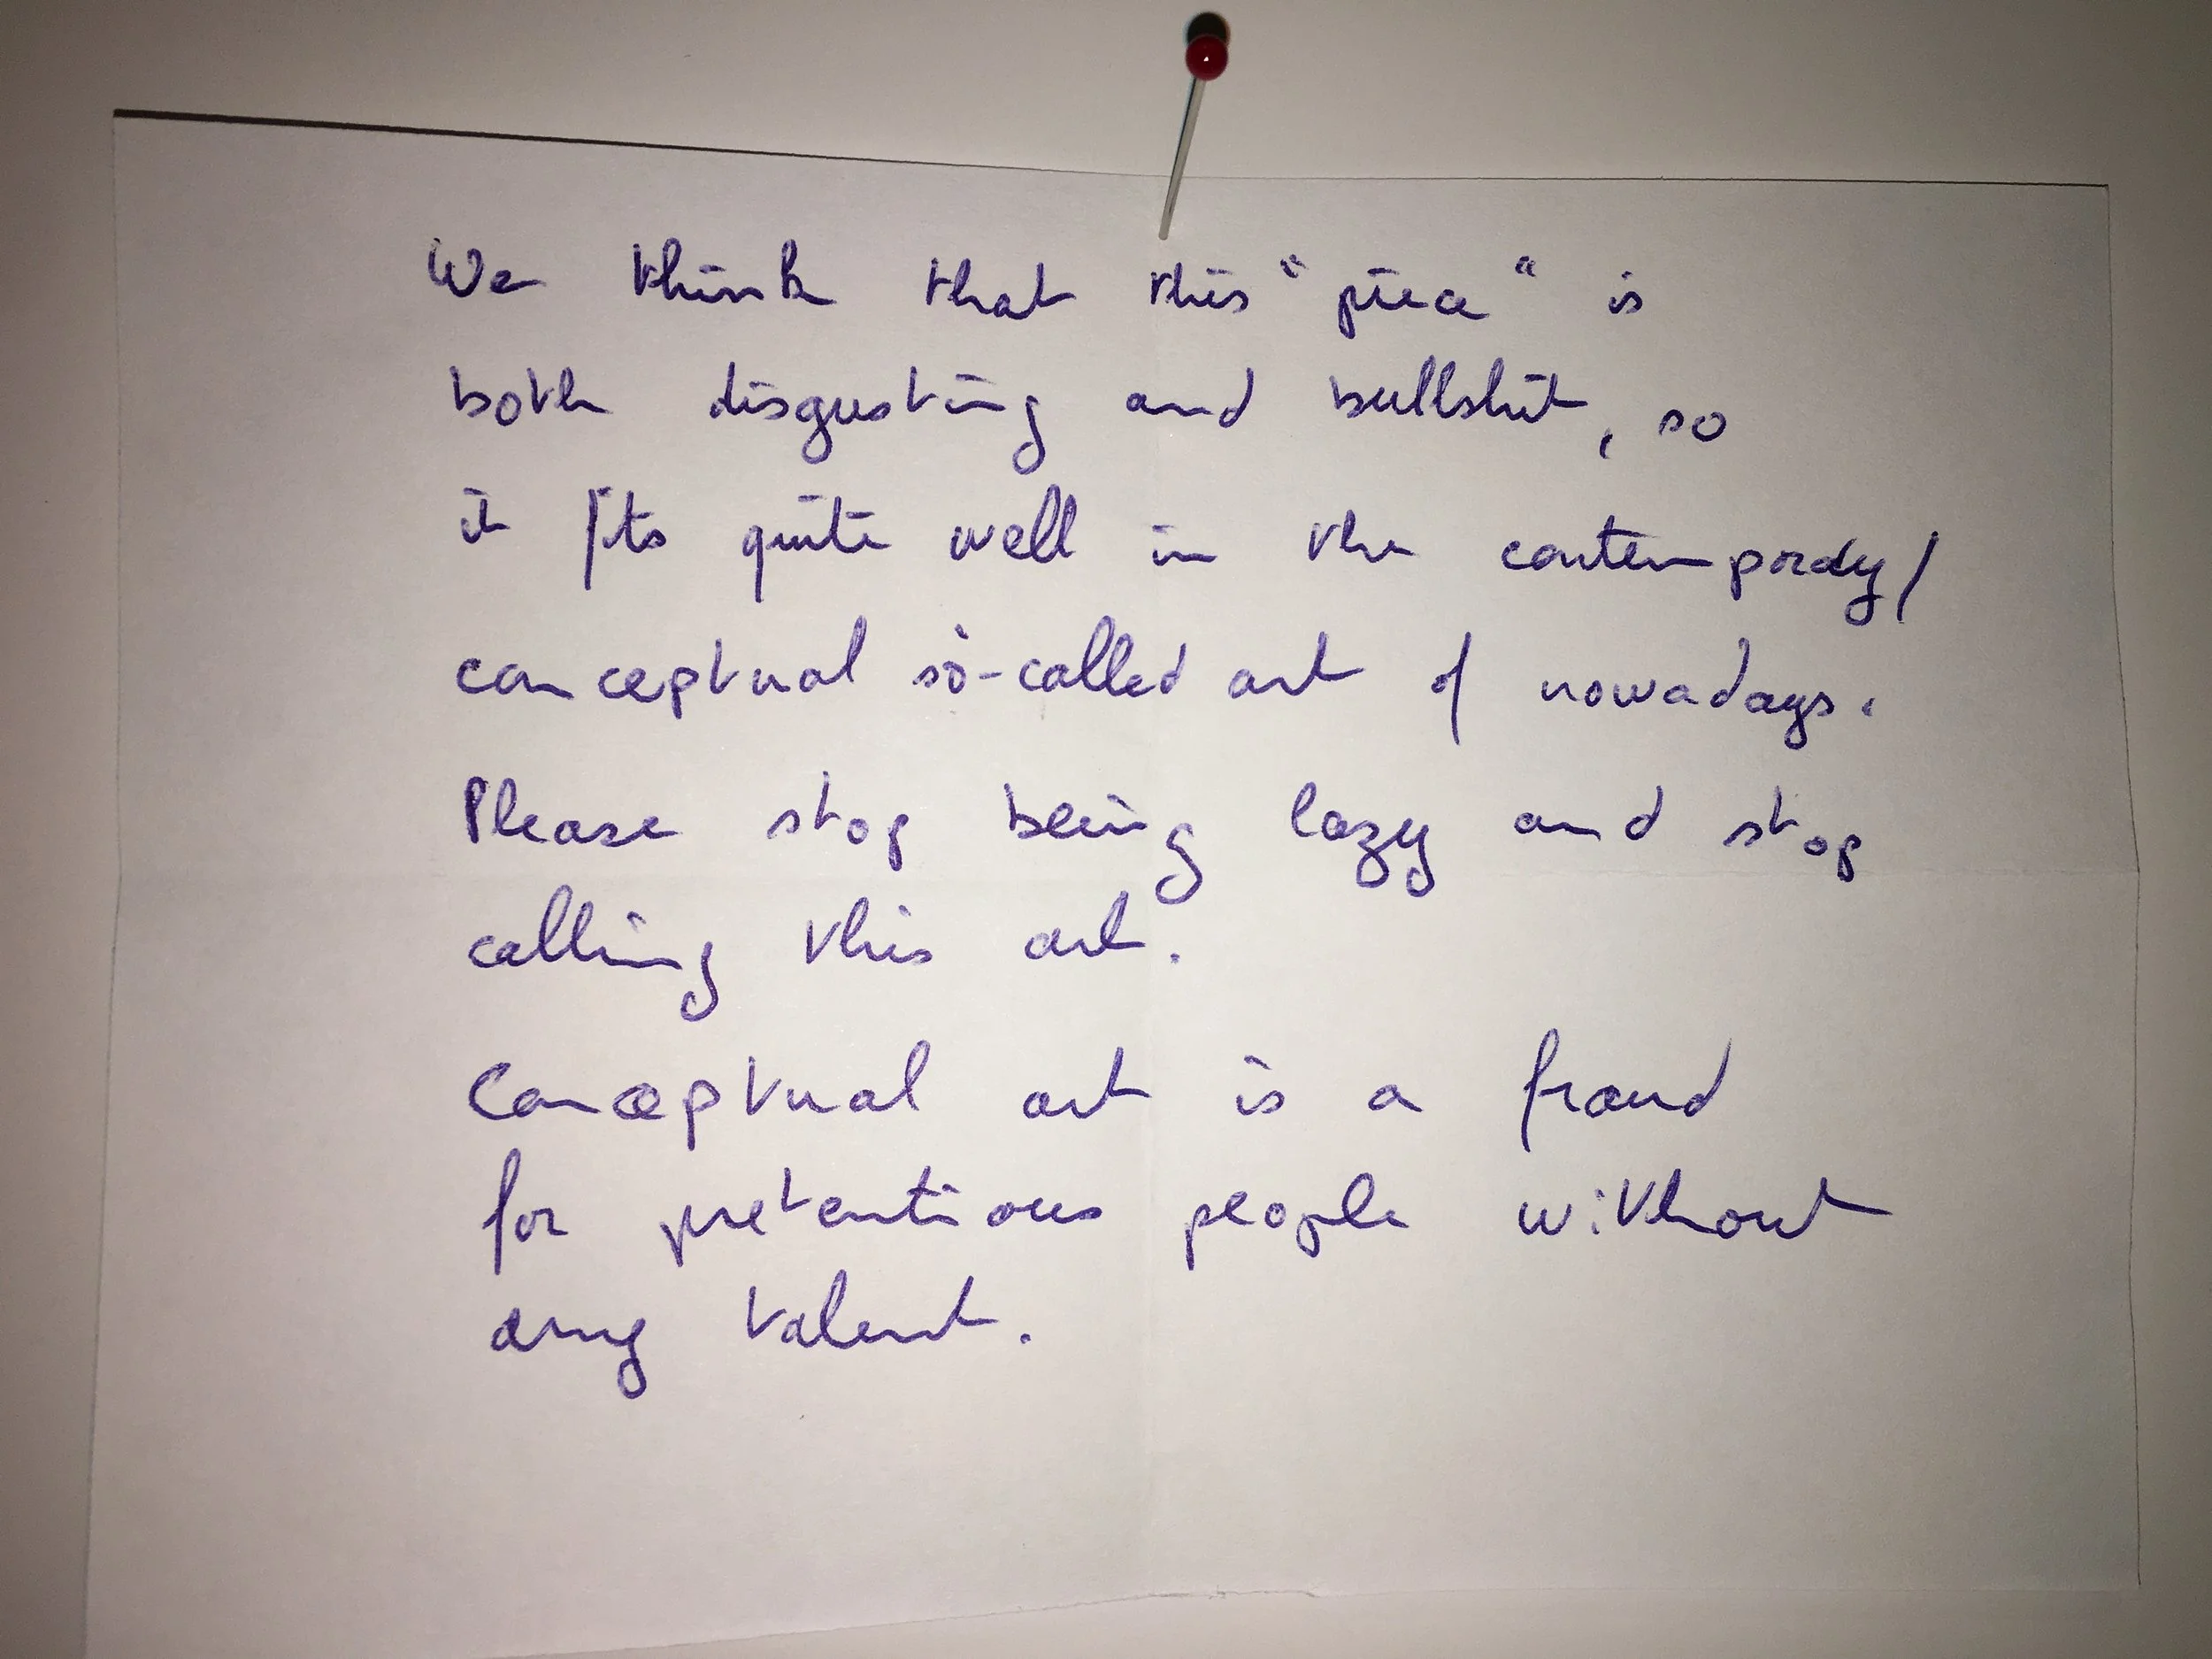 We think that this "piece" is
both disgusting and bullshit, so
it fits quite well in the contemporary/
conceptual so-called art of nowadays.
Please stop being lazy and stop
calling this art.
Conceptual art is a fraud
for pretentious people without
any talent.